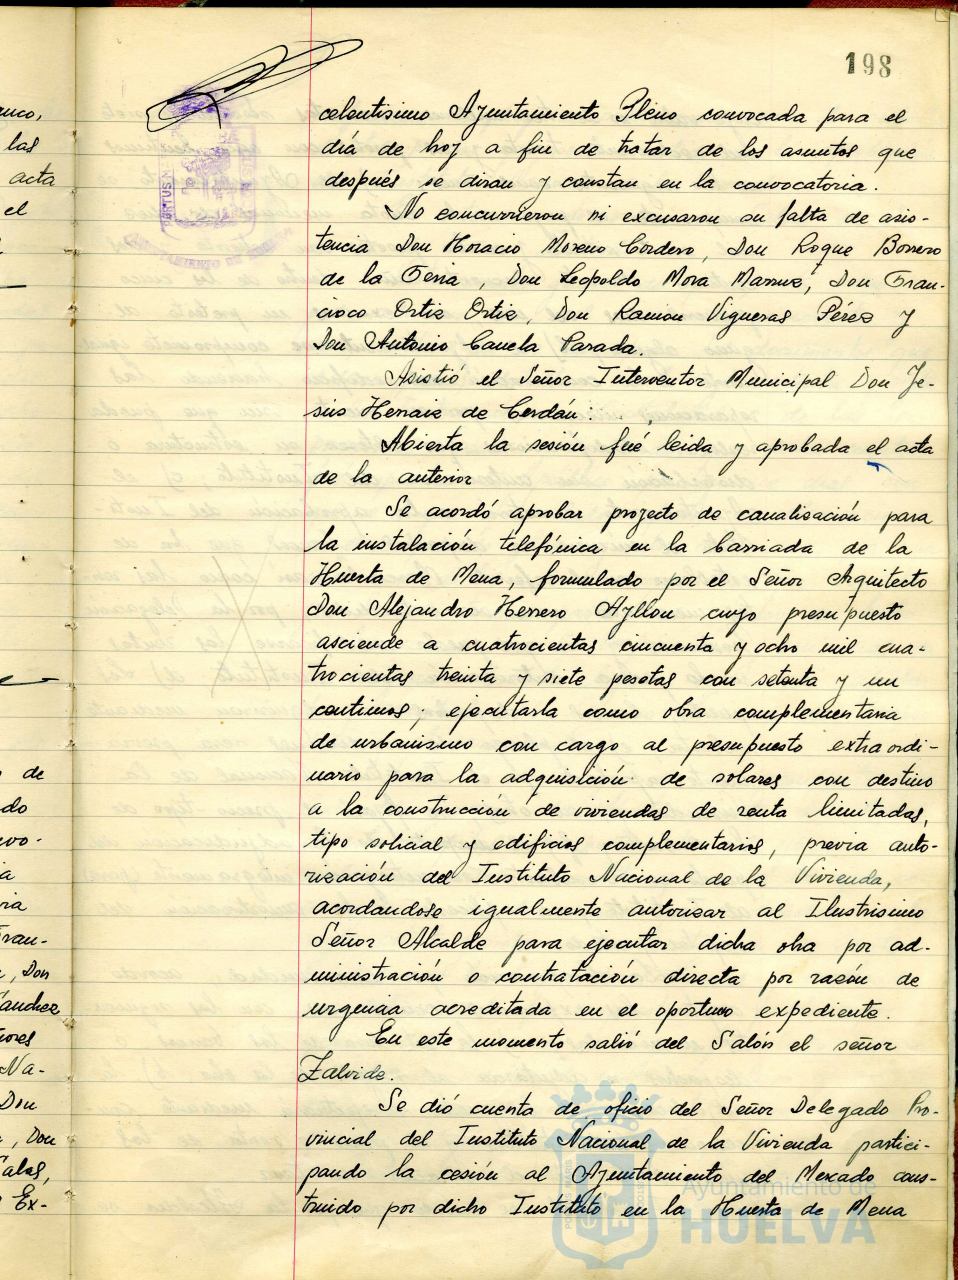 198
celentisimo Ayuntamiento Pleno convocada para el
día de hoy a fin de tratar de los asuntos que
después se diran y constan en la convocatoria.
No concurrieron ni excusaron su falta de asis-
tencia Don Horacio Moreno Cordero, Don Roque Borrero
de la Feria, Don Leopoldo Mora Marruz, Don Fran-
cisco Ortiz Ortiz, Don Ramon Vigueras Pérez y
Don Antonio Canela Parada.
Asistió el Señor Interventor Municipal Don Je-
sús Herraiz de Cerdán.
Abierta la sesión fué leida y aprobada el acta
de la anterior
Se acordó aprobar proyecto de canalisación para
la instalación telefónica en la barriada de la
Huerta de Mena, formulado por el Señor Arquitecto
Don Alejandro Herrero Ayllon cuyo presupuesto
asciende a cuatrocientas cincuenta y ocho mil cua-
trocientas treinta y siete pesetas con setenta y un
centimos; ejecutarla como obra complementaria
de urbanismo con cargo al presupuesto extraordi-
nario para la adquisición de solares con destino
a la construcción de viviendas de renta limitadas,
tipo solicial y edificios complementarios, previa auto-
rización del Instituto Nacional de la Vivienda,
acordandose igualmente autorizar al Ilustrisimo
Señor Alcalde para ejecutar dicha obra por ad-
ministración o contratación directa por razón de
urgencia acreditada en el oportuno expediente.
En este momento salió del Salón el señor
Zalvide.
Se dió cuenta de oficio del Señor Delegado Pro-
vincial del Instituto Nacional de la Vivienda partici-
pando la cesión al Ayuntamiento del Mercado cons-
truido por dicho Instituto en la Huerta de Mena
Ayuntamiento de
HUELVA
las
acta
el
de
do
vo-
Fran-
, Don
Sanchez
Na-
Don
, Don
Ex-